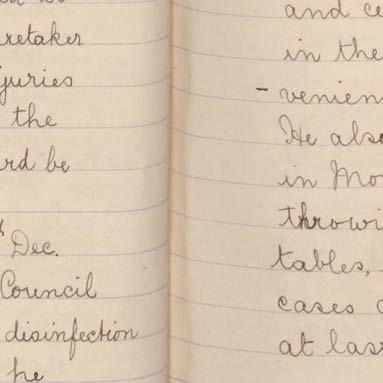 retaker
juries
the
ird be
Dec.
Council
disinfection
he
and ce
in the
- venien
He also
in Mo
throwi
tables,
cases
at las